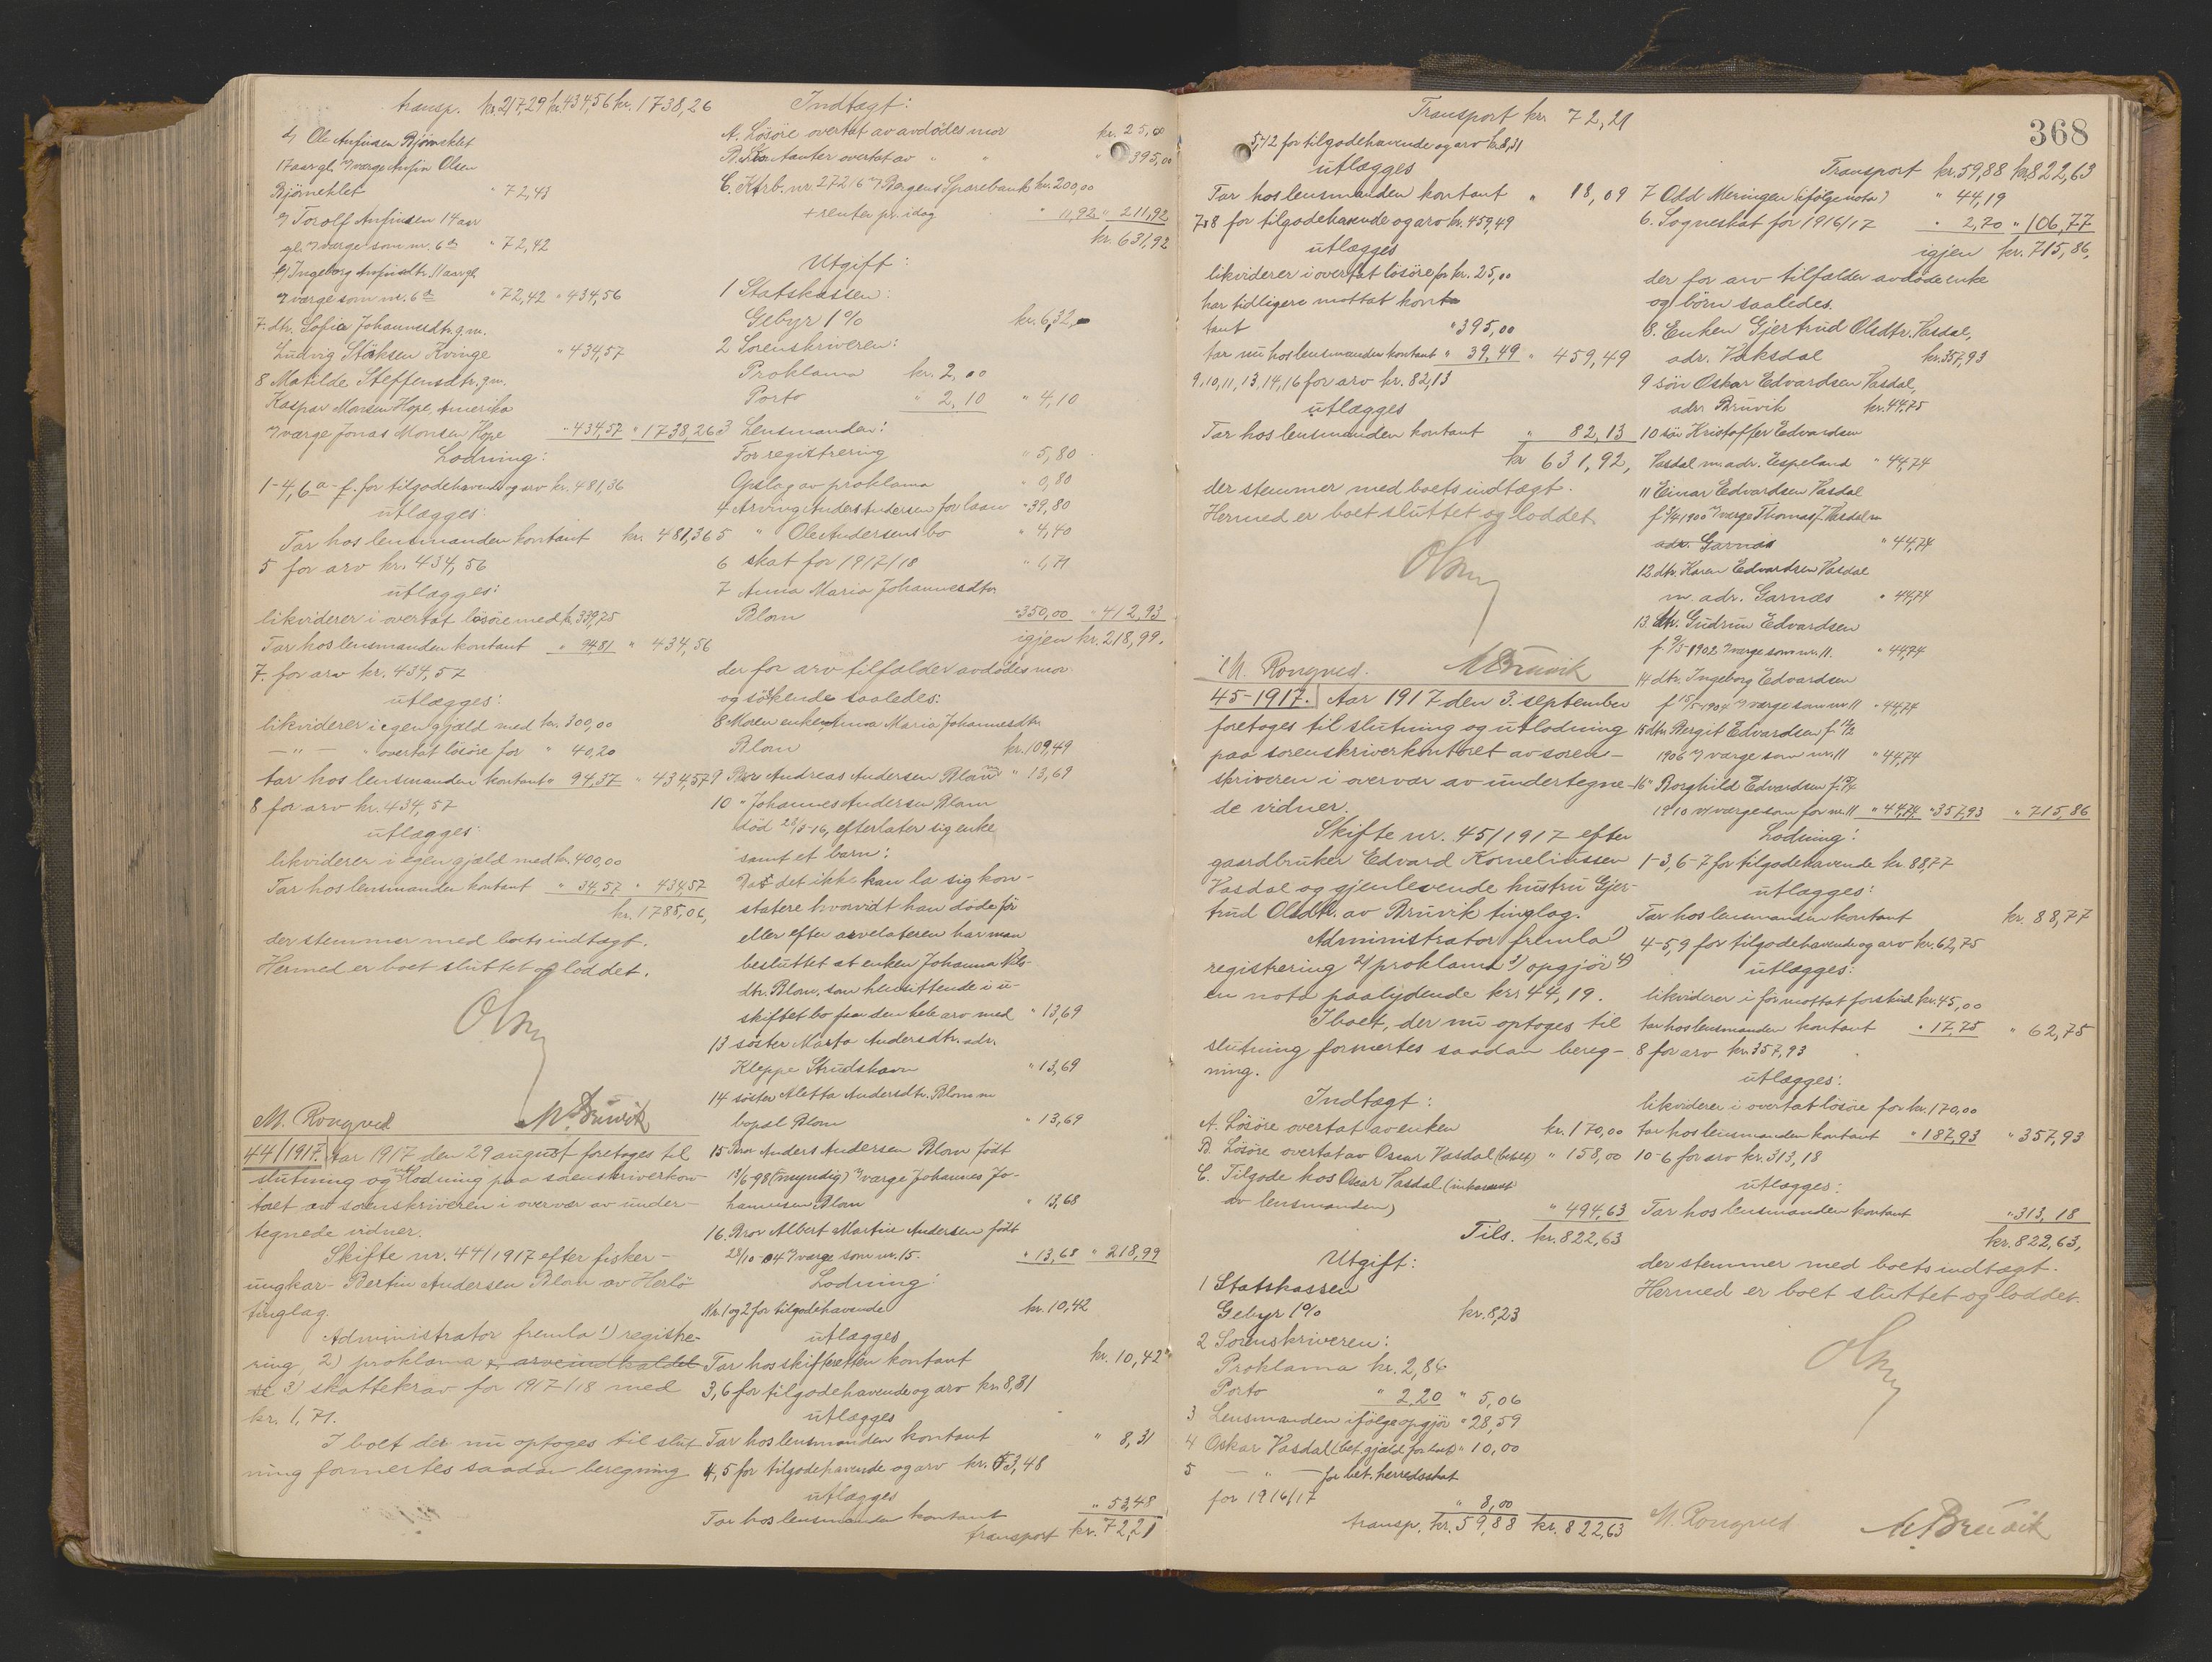 transp. kr. 217,29 kr. 434,56 kr. 1738,26
d) Ole Anfinsen Bjørneklet
17 aar gl. m/ værge Anfin Olsen
Bjørneklet " 72,43
e) Torolf Anfinsen 14 aar
gl. m/ værge som nr. 6 a " 72,42
f) Ingeborg Anfinsdtr. 11 aar gl.
m/ værge som nr. 6 a " 72,42 " 434,56
7. dtr. Sofie Johannesdtr. g.m.
Ludvig Störksen Kvinge " 434,57
8 Matilde Steffensdtr. g.m.
Kaspar Monsen Hope, Amerika
m/ værge Jonas Monsen Hope " 434,57 " 1738,26
Lodning:
1-4, 6 a - f. for tilgodehavende og arv kr. 481,36
utlægges:
Tar hos lensmanden kontant kr. 481,36
5 for arv kr. 434,56
utlægges:
likviderer i overtat lösöre med kr. 339,75
Tar hos lensmanden kontant " 94,81 " 434,56
7. for arv kr. 434,57
utlægges:
likviderer i egen gjæld med kr. 300,00
— " — " overtat lösöre for " 40,20
tar hos lensmanden kontant " 94,37 " 434,57
8 for arv kr. 434,57
utlægges:
likviderer i egen gjæld med kr. 400,00
Tar hos lensmanden kontant " 34,57 " 434,57
kr. 1785,06,
der stemmer med boets indtægt.
Hermed er boet sluttet og loddet.
M. Rongved M. Bruvik
44/1917. Aar 1917 den 29 august foretoges til
slutning og utlodning paa sorenskriverkon-
toret av sorenskriveren i overvær av under-
tegnede vidner.
Skifte nr. 44/1917 efter fisker-
ungkar Bertin Andersen Blom av Herlö
tinglag.
Administrator fremla 1) registre-
ring, 2) proklama
3) skattekrav for 1917/18 med
kr. 1,71.
I boet der nu optoges til slut-
ning formertes saadan beregning
Indtægt:
A. Lösöre overtat av avdödes mor kr. 25,00
B. Kontanter overtat av " " " 395,00
C. Ktrb. nr. 27216 m/ Bergens Sparebank kr. 200,00
+ renter pr. idag " 11,92 " 211,92
kr. 631,92
Utgift:
1 Statskassen:
Gebyr 1% kr. 6,32
2 Sorenskriveren:
Proklama kr. 2,00
Porto " 2,10 " 4,10
3 Lensmanden:
For registrering " 5,80
Opslag av proklama " 0,80
4 Arving Anders Andersen for laan " 39,80
5 " Ole Andersens bo " 4,40
6 skat for 1917/18 " 1,71
7 Anna Maria Johannesdtr.
Blom " 350,00 " 412,93
igjen kr. 218,99.
der for arv tilfalder avdödes mor
og söskende saaledes:
8 Moren enken Anna Maria Johannesdtr.
Blom kr. 109,49
9 Bror Andreas Andersen Blom " 13,69
10 " Johannes Andersen Blom
död 28/5-16, efterlater sig enke
samt et barn:
Da det ikke kan la sig kon-
statere hvorvidt han döde för
eller efter arvelateren har man
besluttet at enken Johanna Nils-
dtr. Blom, som hensittende i u-
skiftet bo faar den hele arv med " 13,69
13 söster Marta Andersdtr. adr.
Kleppe Strudshavn " 13,69
14 söster Aletta Andersdtr. Blom m
bopæl Blom " 13,69
15 Bror Anders Andersen Blom födt
13/6-98 (myndig) m/ værge Johannes Jo-
hannesen Blom " 13,68
16. Bror Albert Martin Andersen födt
28/10-04 m/ værge som nr. 15. " 13,68 " 218,99
Lodning:
Nr. 1 og 2 for tilgodehavende kr. 10,42
utlægges
Tar hos skifteretten kontant kr. 10,42
3,6 for tilgodehavende og arv kr. 8,31
utlægges
Tar hos lensmanden kontant " 8,31
4,5 for tilgodehavende og arv kr. 53,48
utlægges
Tar hos lensmanden kontant " 53,48
transport kr. 72,21
368
Transport kr. 72,21
5, 12 for tilgodehavende og arv kr. 8,31
utlægges
Tar hos lensmanden kontant " 18,09
7 & 8 for tilgodehavende og arv kr. 459,49
utlægges
likviderer i overtat lösöre for kr. 25,00
har tidligere mottat kon-
tant " 395,00
tar nu hos lensmanden kontant " 39,49 " 459,49
9, 10, 11, 13, 14, 16 for arv kr. 82,13
utlægges
Tar hos lensmanden kontant " 82,13
kr 631,92,
der stemmer med boets indtægt.
Hermed er boet sluttet og loddet
M. Rongved. M Bruvik
45-1917. Aar 1917 den 3. september
foretoges til slutning og utlodning
paa sorenskriverkontoret av soren-
skriveren i overvær av undertegne-
de vidner.
Skifte nr. 45/1917 efter
gaardbruker Edvard Korneliussen
Vasdal og gjenlevende hustru Gjer-
trud Olsdtr. av Bruvik tinglag.
Administrator fremla 1)
registrering 2) proklama 3) opgjör 4)
en nota paalydende kr. 44,19.
I boet, der nu optoges til
slutning formertes saadan bereg-
ning.
Indtægt:
A. Lösöre overtat av enken kr. 170,00
B. Lösöre overtat av Oscar Vasdal " 158,00
C. Tilgode hos Oscar Vasdal (inkasseret
av lensmanden) " 494,63
Tils. kr. 822,63
Utgift:
1 Statskassen
Gebyr 1% kr. 8,23
2 Sorenskriveren:
Proklama kr. 2,86
Porto " 2,20 " 5,06
3 Lensmanden ifölge opgjör " 28,59
4 Oskar Vasdal (bet. gjæld for boet) " 10,00
5 — " — for bet. herredsskat
for 1916/17 " 8,00
transp. kr. 59,88 kr. 822,63
Transport kr. 59,88 kr. 822,63
7 Odd Meringen (ifölge nota) " 44,19
6. Sogneskat for 1916/17 " 2,70 " 106,77
igjen kr. 715,86,
der for arv tilfalder avdödes enke
og börn saaledes.
8. Enken Gjertrud Olsdtr. Vasdal,
adr. Vaksdal kr. 357,93
9 sön Oskar Edvardsen Vasdal,
adr. Bruvik kr. 44,75
10 sön Kristoffer Edvardsen
Vasdal m. adr. Espeland " 44,74
11 Einar Edvardsen Vasdal
f 3/4 1900 m/ værge Thomas J. Vasdal m
adr. Garnæs " 44,74
12 dtr. Karen Edvardsen Vasdal
m. adr. Garnæs " 44,74
13. dtr. Gudrun Edvardsen
f. 9/5-1902 m/ værge som nr. 11. " 44,74
14 dtr. Ingeborg Edvardsen
f 15/5-1904 m/ værge som nr 11 " 44,74
15 dtr. Bergit Edvardsen f. 14/2
1906 m/ værge som nr. 11 " 44,74
16 " Borghild Edvardsen f.
1910 m/ værge som for nr. 11 " 44,74 " 357,93 " 715,86
Lodning:
1-3, 6-7 for tilgodehavende kr. 88,77
utlægges:
Tar hos lensmanden kontant kr. 88,77
4-5, 9 for tilgodehavende og arv kr. 62,75
utlægges:
likviderer i för mottat forskud kr. 45,00
tar hos lensmanden kontant " 17,75 " 62,75
8 for arv kr. 357,93
utlægges:
likviderer i overtat lösöre for kr. 170,00
tar hos lensmanden kontant " 187,93 " 357,93
10-6 for arv kr. 313,18
utlægges:
Tar hos lensmanden kontant " 313,18
kr. 822,63,
der stemmer med boets indtægt.
Hermed er boet sluttet og loddet.
M. Rongved M. Bruvik